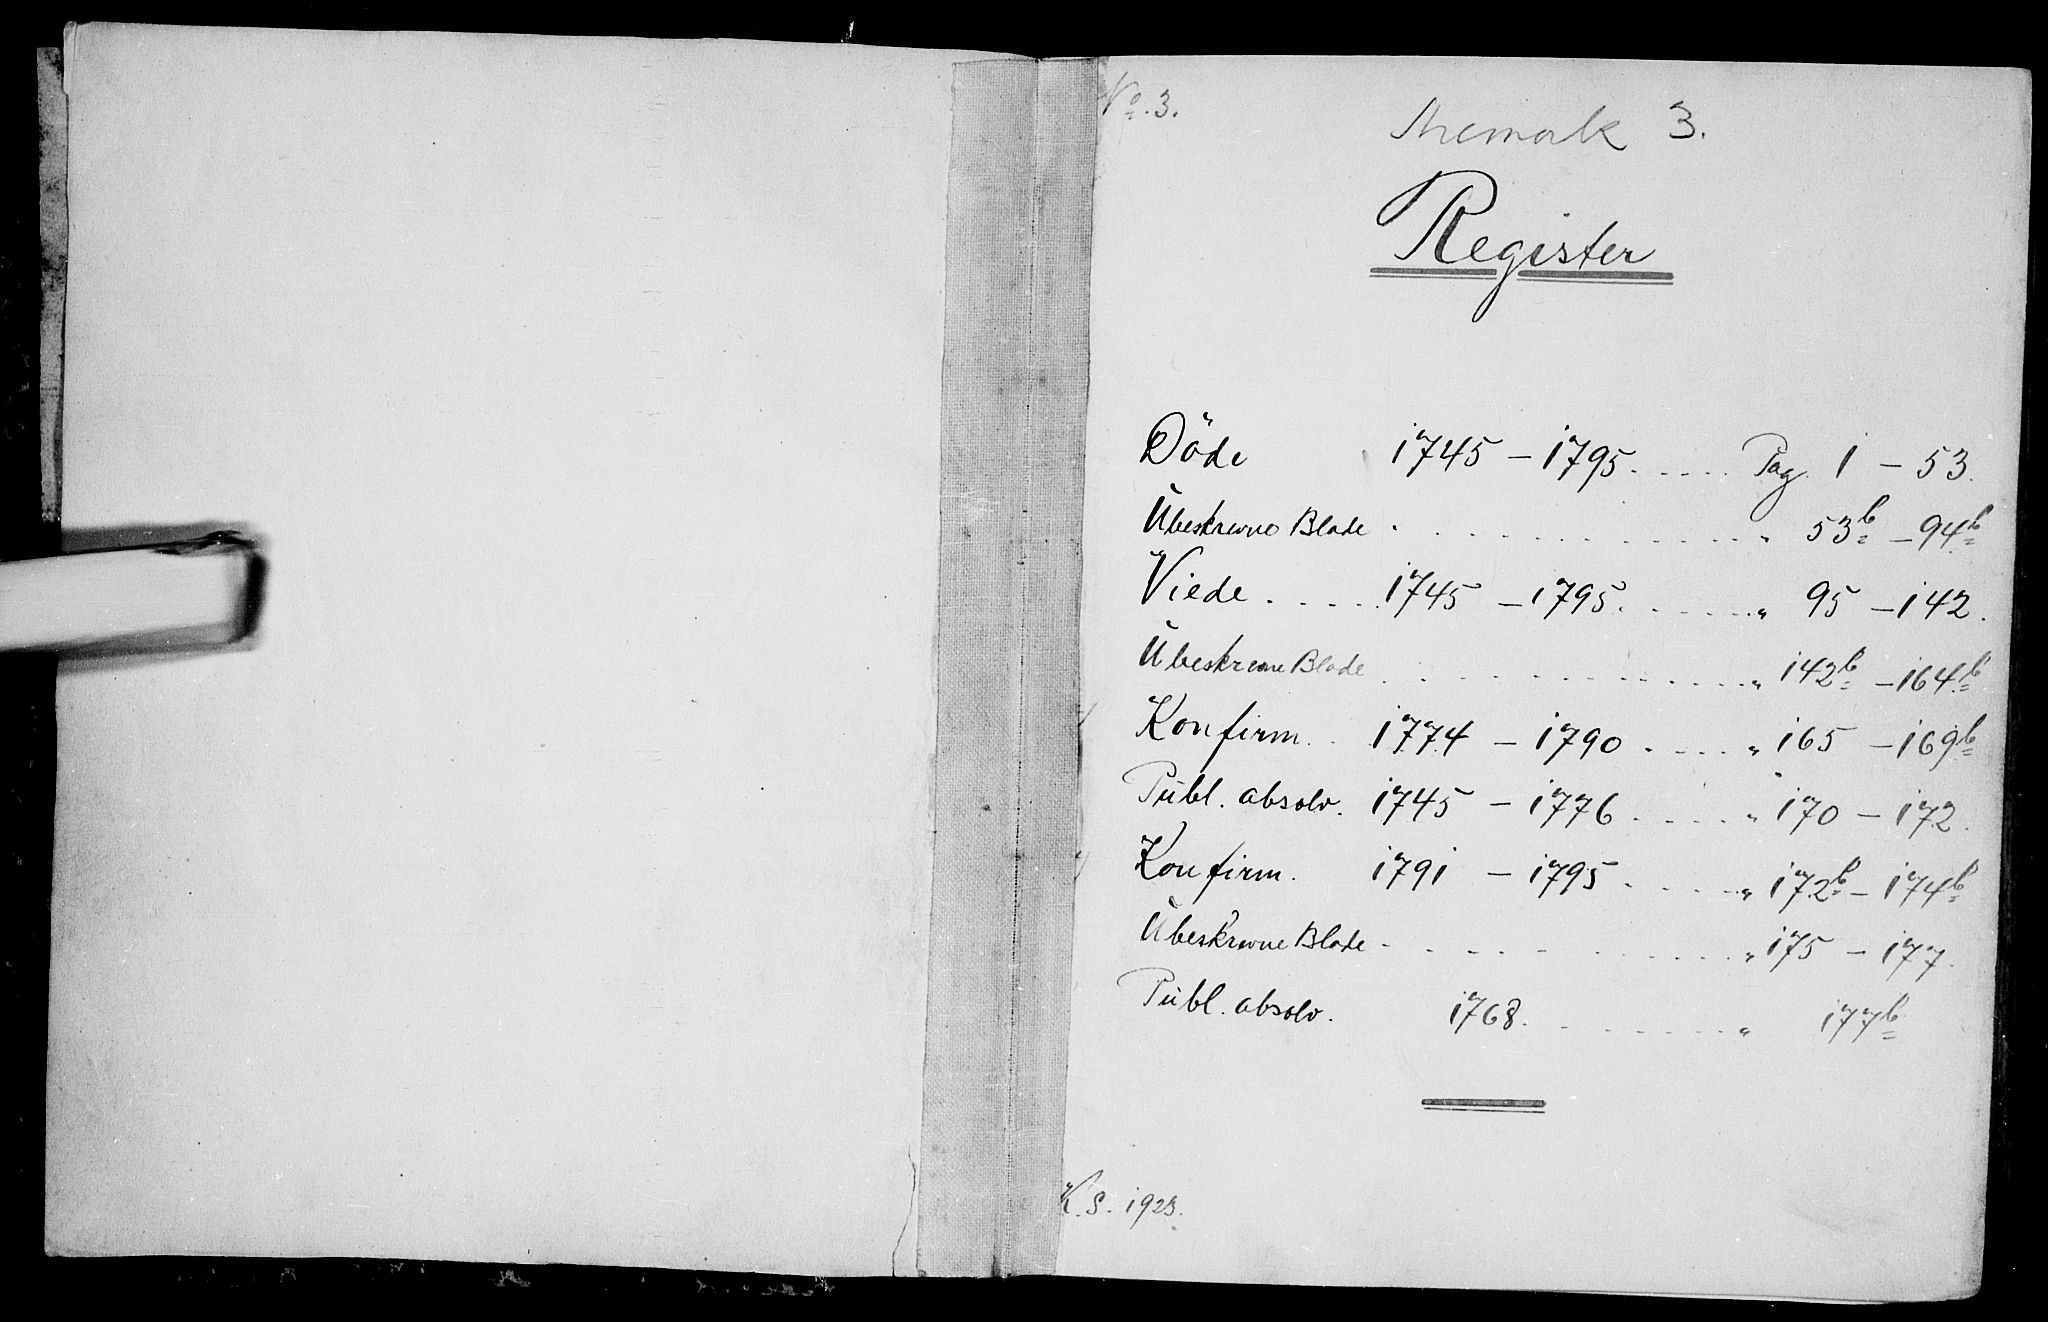 No. 3.
Aremark 3.
Register
Döde 1745 – 1795. . . . . Pag. 1 – 53.
Ubeskrevne Blade . . . . . . . . . . . „ 53b – 94b
Viede . . . . . 1745 – 1795. . . . . . „ 95 – 142.
Ubeskrevne Blade . . . . . . . . . . . „ 142b – 164b
Konfirm. . 1774 – 1790 . . . . . „ 165 – 169b
Publ. absolv. 1745 – 1776 . . . . . „ 170 – 172.
Konfirm. 1791 – 1795 . . . . . „ 172b – 174b
Ubeskrevne Blade . . . . . . . . . . . „ 175 – 177.
Publ. absolv. 1768. . . . . . . . „ 177b
K. S. 1923.